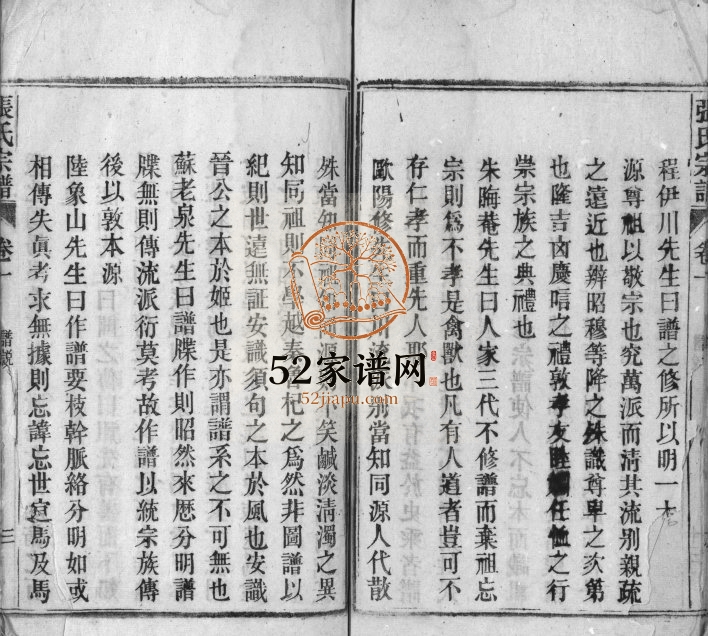 張氏宗譜
卷一
程伊川先生曰譜之修所以明一本
源尊祖以敬宗也究萬派而清共流别親疏
之遠近也辨昭穆等降之殊識尊卑之次第
也隆吉凶慶唁之禮敦孝友睦婣任恤之行
崇宗族之典禮也
朱晦菴先生曰人家三代不修譜而棄祖忘
宗則爲不孝是禽獸也凡有人道者豈可不
存仁孝而重先人耶
歐陽修先生曰川流别當知同源人代散
殊當知同祖
笑鹹淡清濁之異
知同祖則不
越秦
杞之之爲然非圖譜以
紀則世遠無証安識須句之本於風也安識
晉公之本於姬也是亦謂譜系之不可無也
蘇老泉先生曰譜牒作則昭然來歷分明譜
牒無則傳流派衍莫考故作譜以統宗族傳
後以敦本源
陸象山先生曰作譜要枝幹脈絡分明如或
相傳失眞考求無據則忘諱忘世冩馬及馬
張氏宗譜
卷一
譜説
三
52家谱网
52jiapu.com